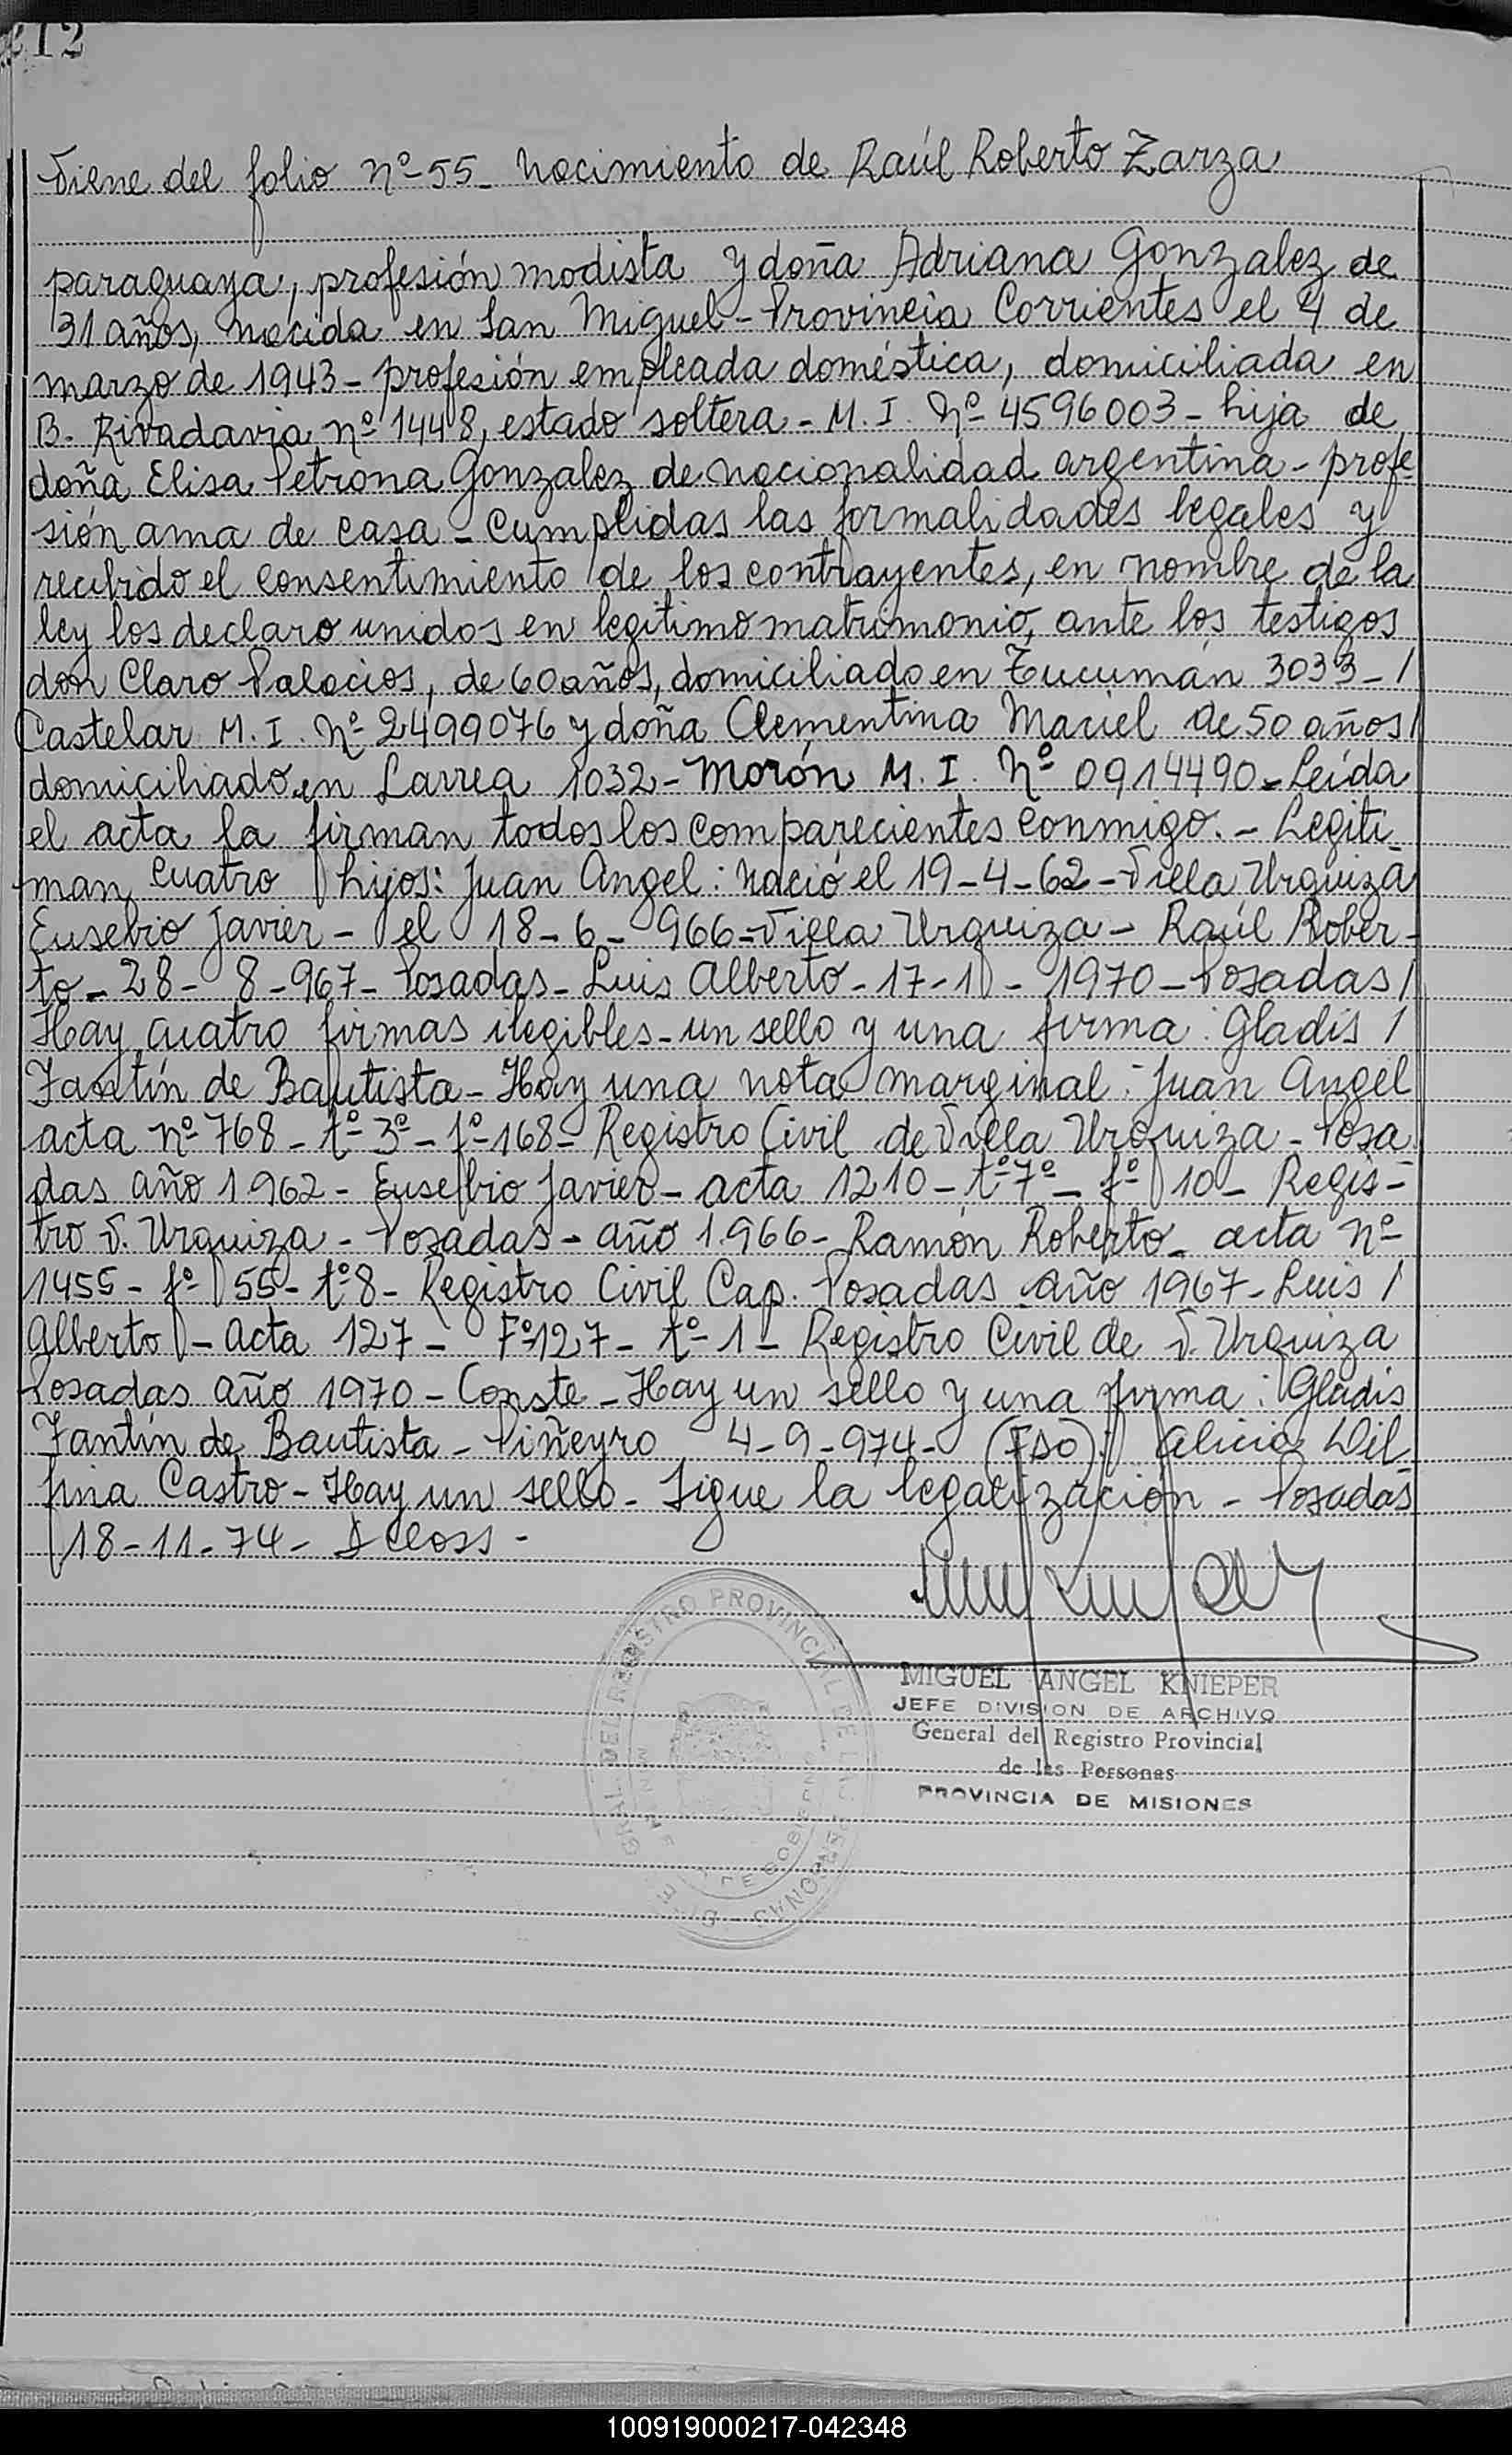 212
Viene del folio nº 55 - Nacimiento de Raúl Roberto Zarza
paraguaya, profesión modista y doña Adriana Gonzalez de
31 años, nacida en San Miguel - Provincia Corrientes el 4 de
marzo de 1943 - profesión empleada doméstica, domiciliada en
B. Rivadavia nº 1448, estado soltera - M. I. Nº 4596003 - hija de
doña Elisa Petrona Gonzalez de nacionalidad argentina - profe
sión ama de casa - Cumplidas las formalidades legales y
recibido el consentimiento de los contrayentes, en nombre de la
ley los declaro unidos en legitimo matrimonio, ante los testigos
don Claro Palacios, de 60 años, domiciliado en Tucumán 3033 - /
Castelar M. I. Nº 2499076 y doña Clementina Maciel de 50 años /
domiciliado en Larrea 1032 - Morón M. I. Nº 0914490 - Leída
el acta la firman todos los comparecientes conmigo. - Legiti-
man cuatro hijos: Juan Angel: Nació el 19-4-62 - Villa Urquiza
Eusebio Javier - el 18-6-966 - Villa Urquiza - Raúl Rober-
to - 28-8-967 - Posadas - Luis Alberto - 17-1-1970 - Posadas /
Hay cuatro firmas ilegibles - un sello y una firma: Gladis /
Fantín de Bautista - Hay una nota marginal: Juan Angel
acta nº 768 - tº 3º - fº 168 - Registro Civil de Villa Urquiza - Posa-
das año 1962 - Eusebio Javier - acta 1210 - tº 7º - fº 10 - Regis-
tro V. Urquiza - Posadas - año 1.966 - Ramón Roberto - acta nº
1455 - fº 55 - tº 8 - Registro Civil Cap. Posadas año 1967 - Luis /
Alberto - Acta 127 - Fº 127 - tº 1 - Registro Civil de V. Urquiza
Posadas año 1970 - Conste - Hay un sello y una firma: Gladis
Fantín de Bautista - Piñeyro 4-9-974 - (FDO): Alicia Del-
fina Castro - Hay un sello - Sigue la legalización - Posadas
18-11-74 -
MIGUEL ANGEL KNIEPER
JEFE DIVISION DE ARCHIVO
General del Registro Provincial
de las Personas
PROVINCIA DE MISIONES
GRAL DEL REGISTRO PROVINCIAL DE LAS PERSONAS
100919000217-042348